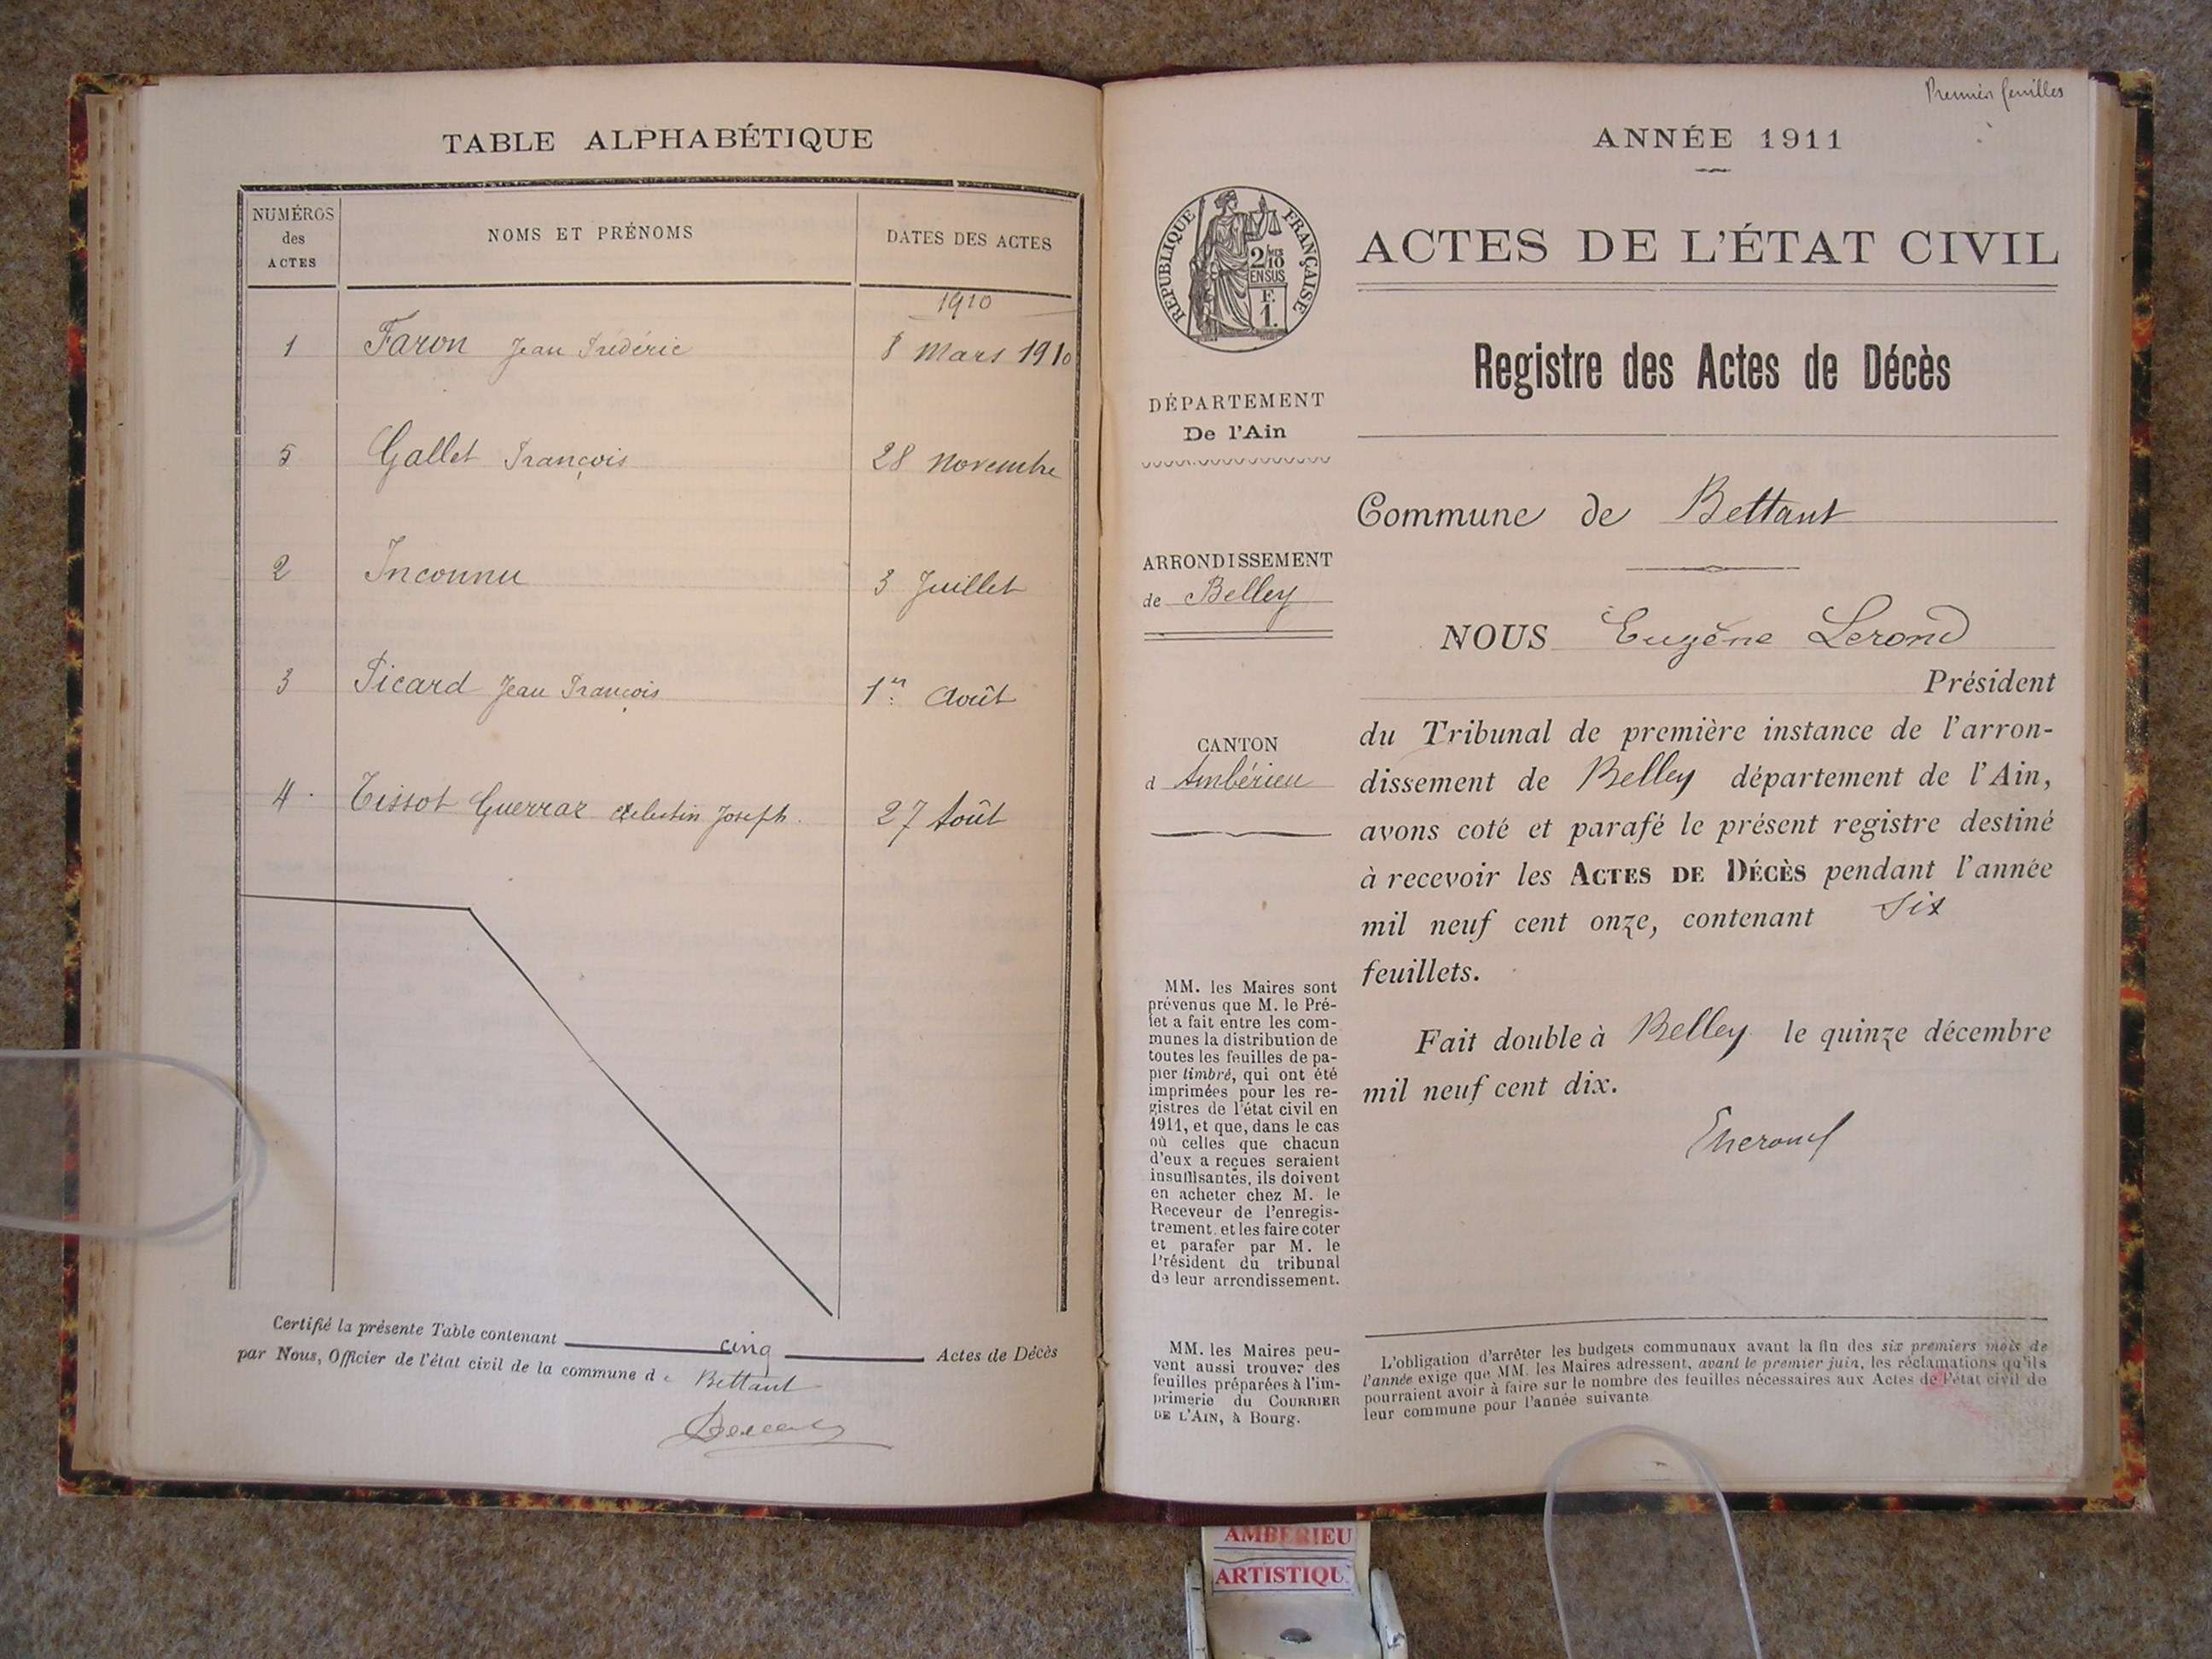 TABLE ALPHABÉTIQUE
NUMÉROS des ACTES
NOMS ET PRÉNOMS
DATES DES ACTES
1910
1 Faron Jean Frédéric 8 Mars 1910
5 Gallet François 28 Novembre
2 Inconnu 3 Juillet
3 Picard Jean François 1er Août
4 Tissot Guerraz Célestin Joseph 27 Août
Certifié la présente Table contenant cinq Actes de Décès
par Nous, Officier de l'état civil de la commune de Bettant
Premièr feuilles
ANNÉE 1911
RÉPUBLIQUE FRANÇAISE
2/10
EN SUS
F.
1.
ACTES DE L'ÉTAT CIVIL
Registre des Actes de Décès
DÉPARTEMENT
De l'Ain
ARRONDISSEMENT
de Belley
CANTON
d Ambérieu
Commune de Bettant
NOUS Eugène Lerond
Président
du Tribunal de première instance de l'arron-
dissement de Belley département de l'Ain,
avons coté et parafé le présent registre destiné
à recevoir les ACTES DE DÉCÈS pendant l'année
mil neuf cent onze, contenant six
feuillets.
Fait double à Belley le quinze décembre
mil neuf cent dix.
MM. les Maires sont
prévenus que M. le Pré-
fet a fait entre les com-
munes la distribution de
toutes les feuilles de pa-
pier timbré, qui ont été
imprimées pour les re-
gistres de l'état civil en
1911, et que, dans le cas
où celles que chacun
d'eux a reçues seraient
insuffisantes, ils doivent
en acheter chez M. le
Receveur de l'enregis-
trement, et les faire coter
et parafer par M. le
Président du tribunal
de leur arrondissement.
MM. les Maires peu-
vent aussi trouver des
feuilles préparées à l'im-
primerie du COURRIER
DE L'AIN, à Bourg.
L'obligation d'arrêter les budgets communaux avant la fin des six premiers mois de
l'année exige que MM. les Maires adressent, avant le premier juin, les réclamations qu'ils
pourraient avoir à faire sur le nombre des feuilles nécessaires aux Actes de l'état civil de
leur commune pour l'année suivante
AMBERIEU
ARTISTIQU